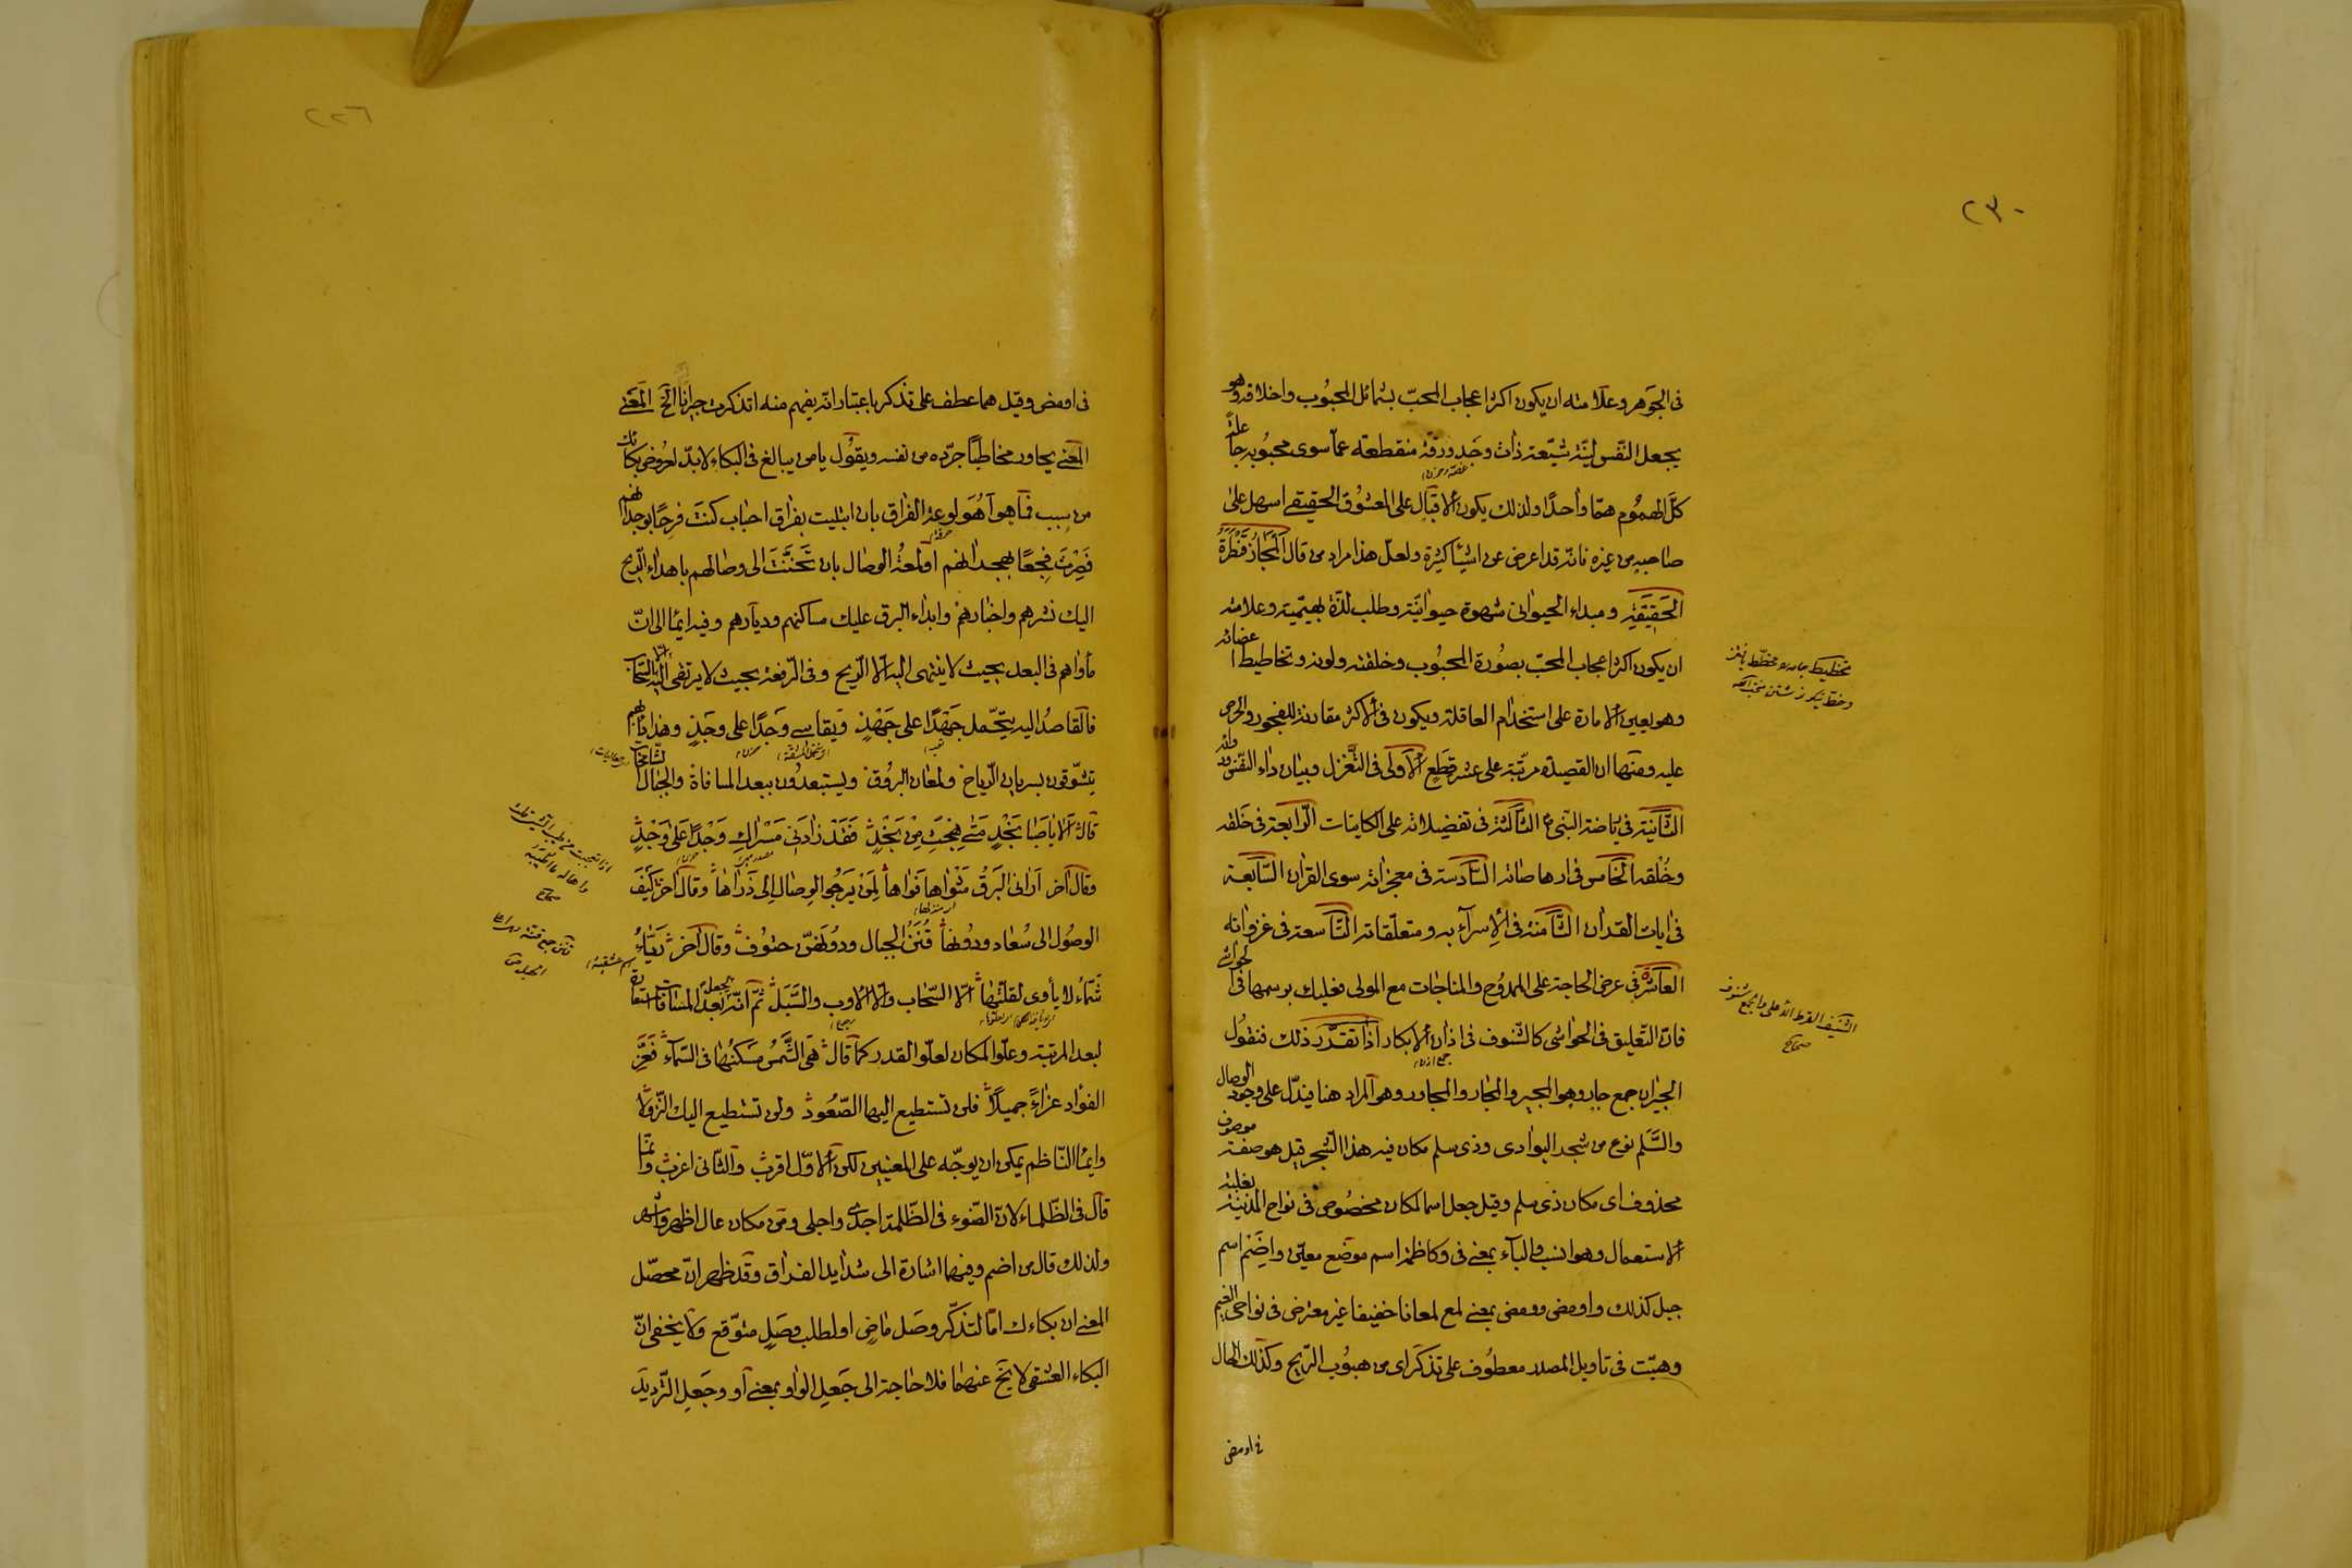 ٢٣٠
فى الجوهر وعلامته ان يكون اكثر اعجاب المحبّ بشمائل المحبوب واخلاقه وهو
يجعل النّفس ليّنة شيّقة ذات وجد ورقّة منقطعة عمّا سوى محبوبه جاعلة
كلّ الهموم همّا واحدًا ولذلك يكون الاقبال على المعشوق الحقيقى اسهل على
صاحبه من غيره فانّه قد اعرض عن اشياء كثيرة ولعلّ هذا مراد من قال المجاز قنطرة
الحقيقة ومبداء الحيوانى شهوة حيوانيّة وطلب لذّة بهيميّة وعلامته
ان يكون اكثر اعجاب المحبّ بصورة المحبوب وخلقته ولونه وتخاطيط اعضائه
وهو يعين الامارة على استخدام العاقلة ويكون فى الاكثر مقارنة للفجور والحرص
عليه ومنها ان القصيدة مرتّبة على عشر قطع الاولى فى التّغزل وبيان داء النّفس ودوائه
الثّانية فى رياضة النبى ع الثّالثة فى تفضيلاته على الكاينات الرّابعة فى خلقه
وخُلقه الخامس فى ارهاصاته السّادسة فى معجزاته سوى القران السّابعة
فى ايات القران الثّامنة فى الإسراء به ومتعلّقاته التّاسعة فى غزواته
العاشرة فى عرض الحاجة على الممدوح والمناجات مع المولى فعليك برسمها فى الحواشى
فانّ التّعليق فى الحواشى كالشّنوف فى اذان الابكار اذا تقرّر ذلك فنقول
الجيران جمع جار وهو المجير والمجار والمجاور وهو المراد هنا فيدلّ على وجود الوصال
والسَّلَم نوع من شجر البوادى وذى سلم مكان فيه هذا الشّجر قيل هو صفة موصوف
محذوف اى مكان ذى سلم وقيل جعل اسما لمكان مخصوص فى نواح المدينة بغلبة
الاستعمال وهو انسب والباء بمعنى فى وكاظمة اسم موضع معيّن واِضَم اسم
جبل كذلك واومض وومض بمعنى لمع لمعانا خفيفا غير معترض فى نواحى الغيم
وهبّت فى تاويل المصدر معطوف على تذكر اى من هبوب الرّيح وكذلك الحال
فى اومض
وخط نيكو
الشّنف القرط الأعلى والجمع شنوف
صحاح
٢٢٦
فى اومض وقيل هما عطف على تذكر باعتبار انّه يفهم منه اتذكرت جيرانا الخ المعنى
المعنى يحاور مخاطبًا جرّده من نفسه ويقول يا من يبالغ فى البكاء لابدّ لعروض بكائك
من سبب فما هو اَهُوَ لوعة الفراق بان ابتليت بفراق احباب كنتَ فرحًا بوجدانهم
فصِرْتَ فجعًا بهجدانهم اَو لمعة الوصال بان تحنّنتَ الى وصالهم باهداء الرّيح
اليك نشرهم واخبارهم وابداء البرق عليك مساكنهم وديارهم وفيه ايماء الى انّ
مأواهم فى البعد بحيث لا ينتهى اليه الّا الرّيح وفى الرّفعة بحيث لا يرتقى اليه الّا السّحاب
فالقاصدُ اليه يتحمّل جَهْدًا على جَهْدٍ ويقاسے وَجدًا على وجَدٍ
يتشوّقون بسريان الرّياح ولمعان البروق ويستبعدون ببعد المسافاة والجبال
قال اَلا يا صَبا نَجْدٍ متى هِجْتِ مِنْ نَجْدٍ فَقَدْ زادَنِى مَسْراكِ وَجْدًا عَلى وَجْدٍ
وقال آخر اَرانى البَرقُ مَثْواها نَواها لِمَنْ يَرجُو الوِصالَ اِلى ذَراها وقال آخر كَيْفَ
الوصُول الى سُعاد ودونها قُنَنُ الجبال ودونَهنّ حتوف وقال آخر رَبّاء
شمّاء لا يأوى لقلّتها الّا السّحاب والّا الاوب والسَّبَل ثمّ انّه
لبعد المرتبة وعلوّ المكان لعلوّ القدر كما قال هى الشَّمسُ مسكنها فى السّماء فعَزِّ
الفؤاد عزاءً جميلًا فلن تستطيع اليها الصّعود ولن تستطيع اليك النّزولا
وايماء النّاظم يمكن ان يوجّه على المعنيين لكن الاوّل اقرب والثّانى اغرب وانّما
قال فى الظّلماء لانّ الضّوء فى الظّلمة اجدى واجلى ومن مكان عال اظهر واشهر
ولذلك قال من اضم وفيهما اشارة الى شدايد الفراق وقد ظهر انّ محصّل
المعنى ان بكاءك امّا لتذكّر وصَل ماضٍ او لطلب وصَل متوقّع ولا يخفى انّ
البكاء العشقى لا يخ عنهما فلا حاجة الى جَعل الواو بمعنى اَو وجَعل التّرديد